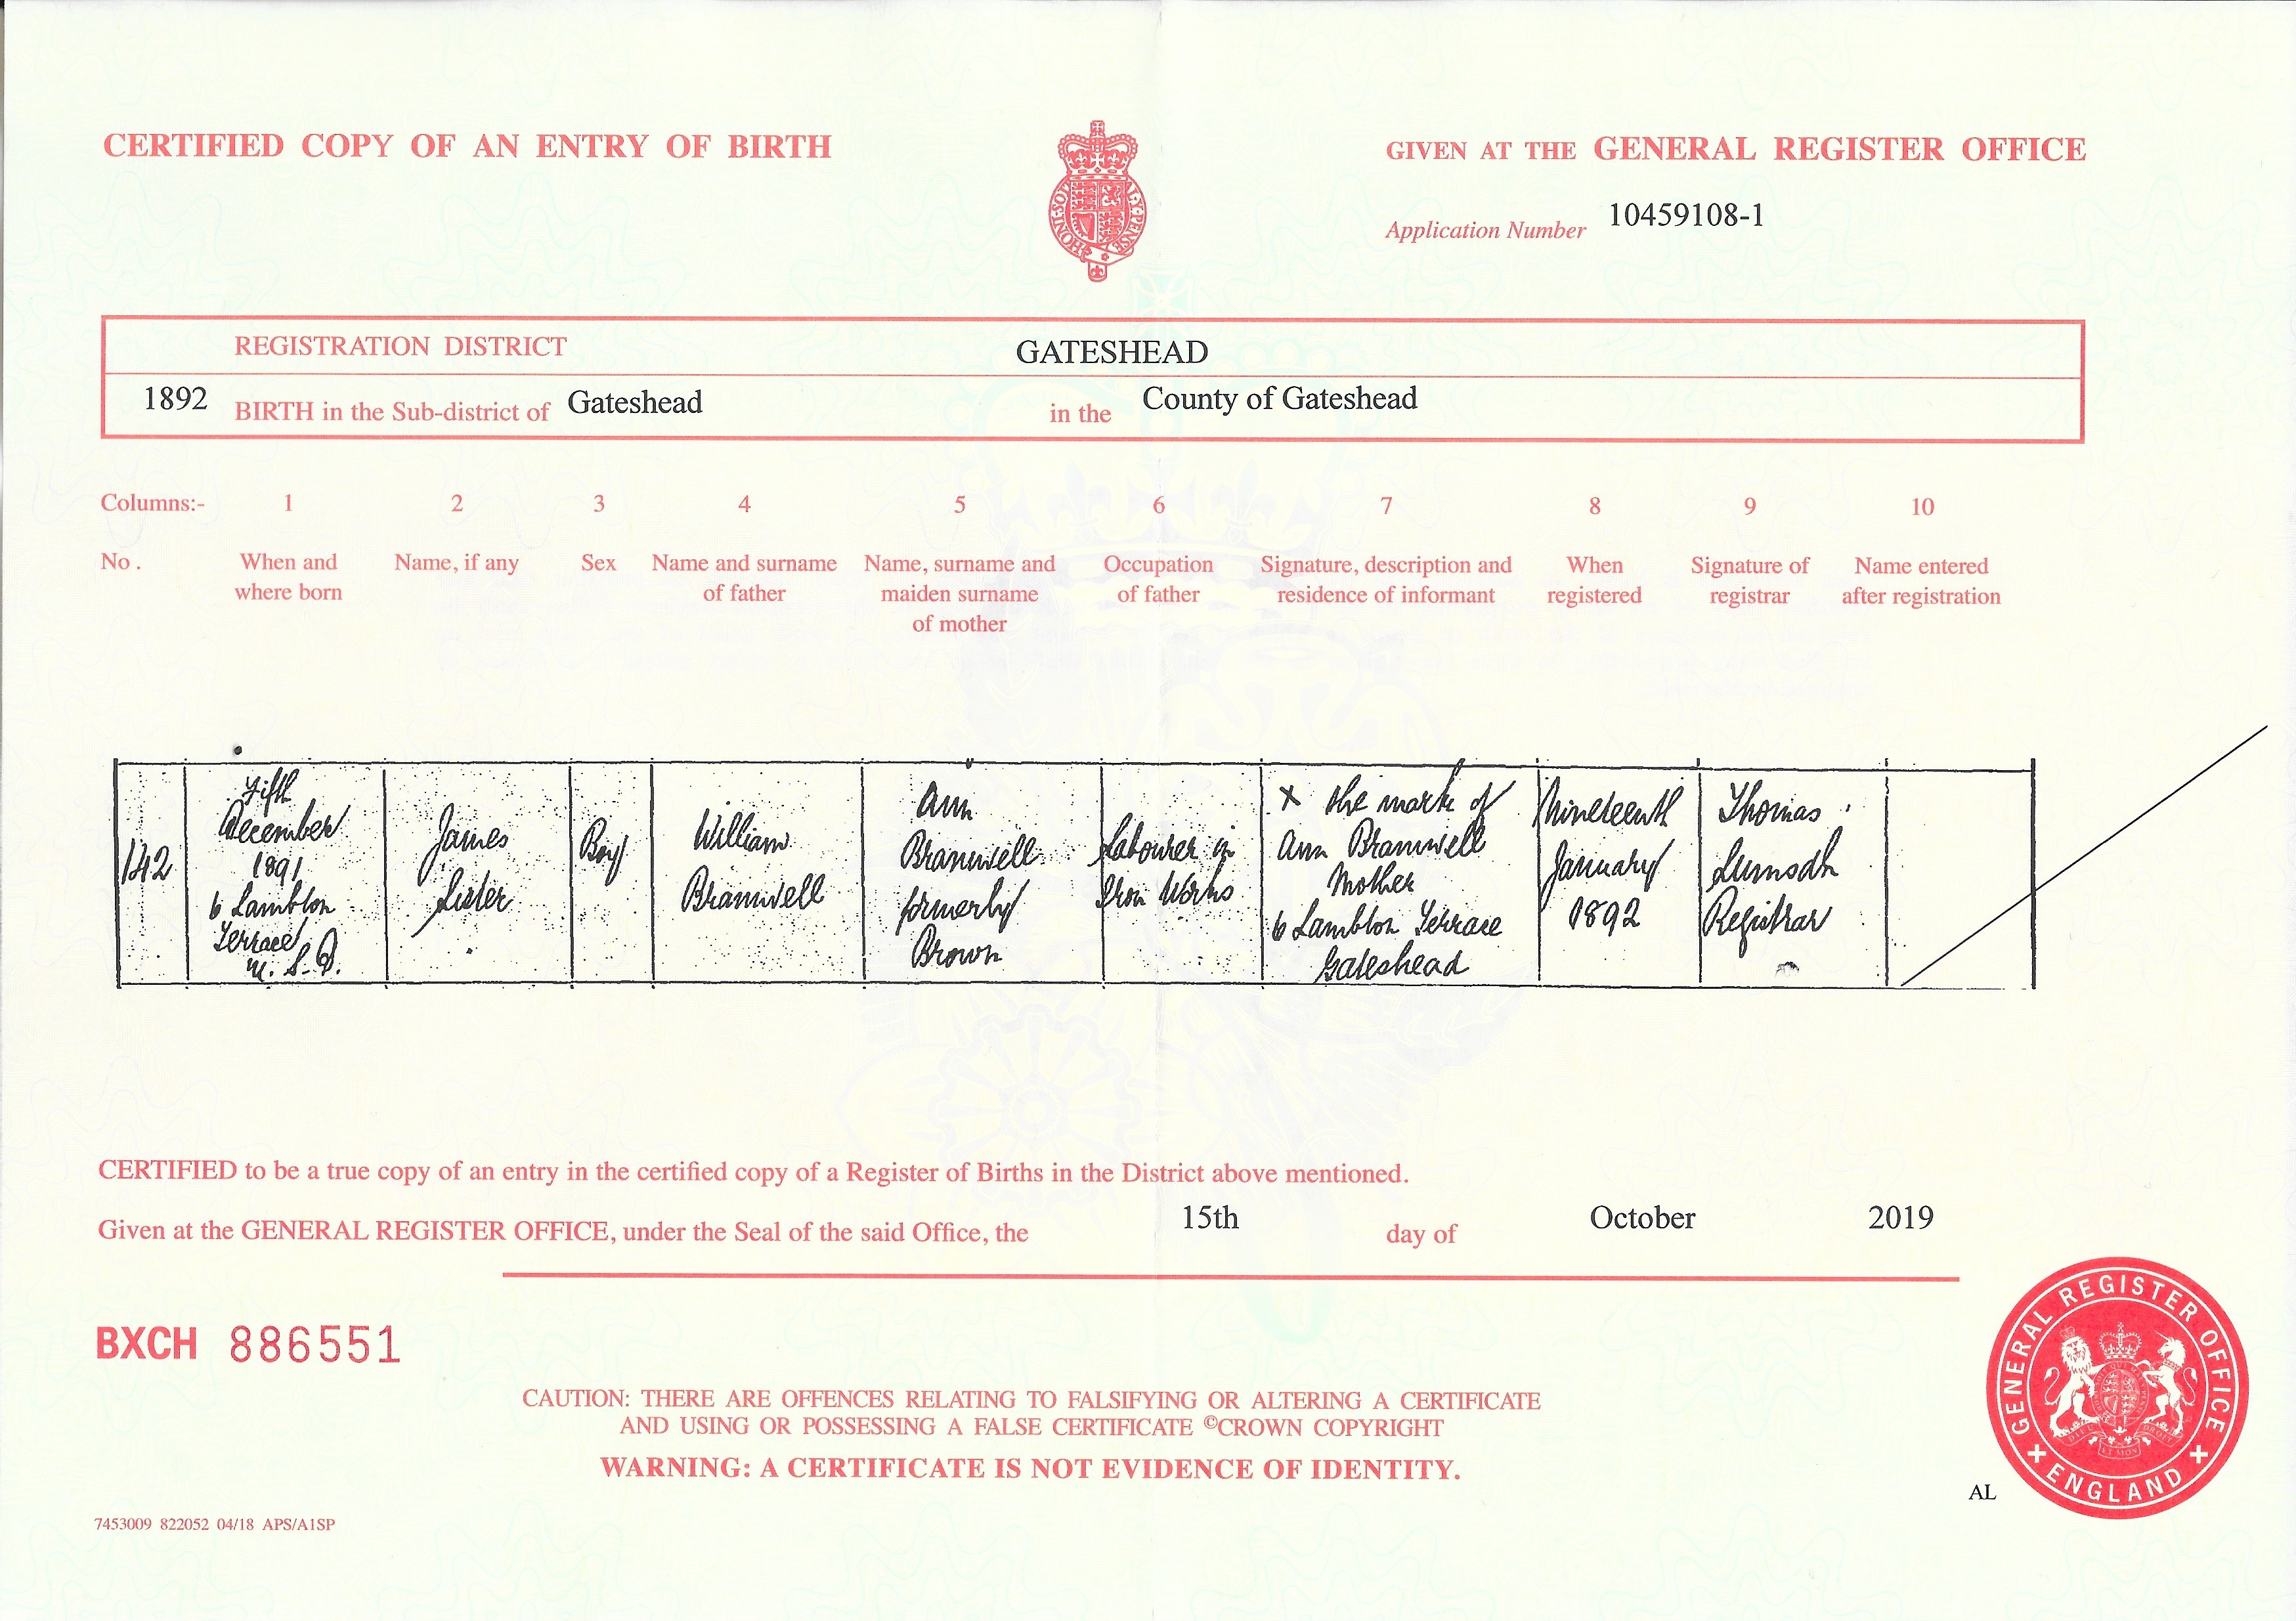 CERTIFIED COPY OF AN ENTRY OF BIRTH
GIVEN AT THE GENERAL REGISTER OFFICE
Application Number 10459108-1
REGISTRATION DISTRICT GATESHEAD
1892 BIRTH in the Sub-district of Gateshead in the County of Gateshead
Columns:- 1 2 3 4 5 6 7 8 9 10
No. When and where born
Name, if any
Sex
Name and surname of father
Name, surname and maiden surname of mother
Occupation of father
Signature, description and residence of informant
When registered
Signature of registrar
Name entered after registration
142
Fifth
December
1891
6 Lambton
Terrace
U. S. D.
James
Lister
Boy
William
Bramwell
Ann
Bramwell
formerly
Brown
Labourer in
Iron Works
X the mark of
Ann Bramwell
Mother
6 Lambton Terrace
Gateshead
Nineteenth
January
1892
Thomas
Lumsdn
Registrar
CERTIFIED to be a true copy of an entry in the certified copy of a Register of Births in the District above mentioned.
Given at the GENERAL REGISTER OFFICE, under the Seal of the said Office, the 15th day of October 2019
BXCH 886551
CAUTION: THERE ARE OFFENCES RELATING TO FALSIFYING OR ALTERING A CERTIFICATE
AND USING OR POSSESSING A FALSE CERTIFICATE ©CROWN COPYRIGHT
WARNING: A CERTIFICATE IS NOT EVIDENCE OF IDENTITY.
GENERAL REGISTER OFFICE
ENGLAND
AL
7453009 822052 04/18 APS/A1SP